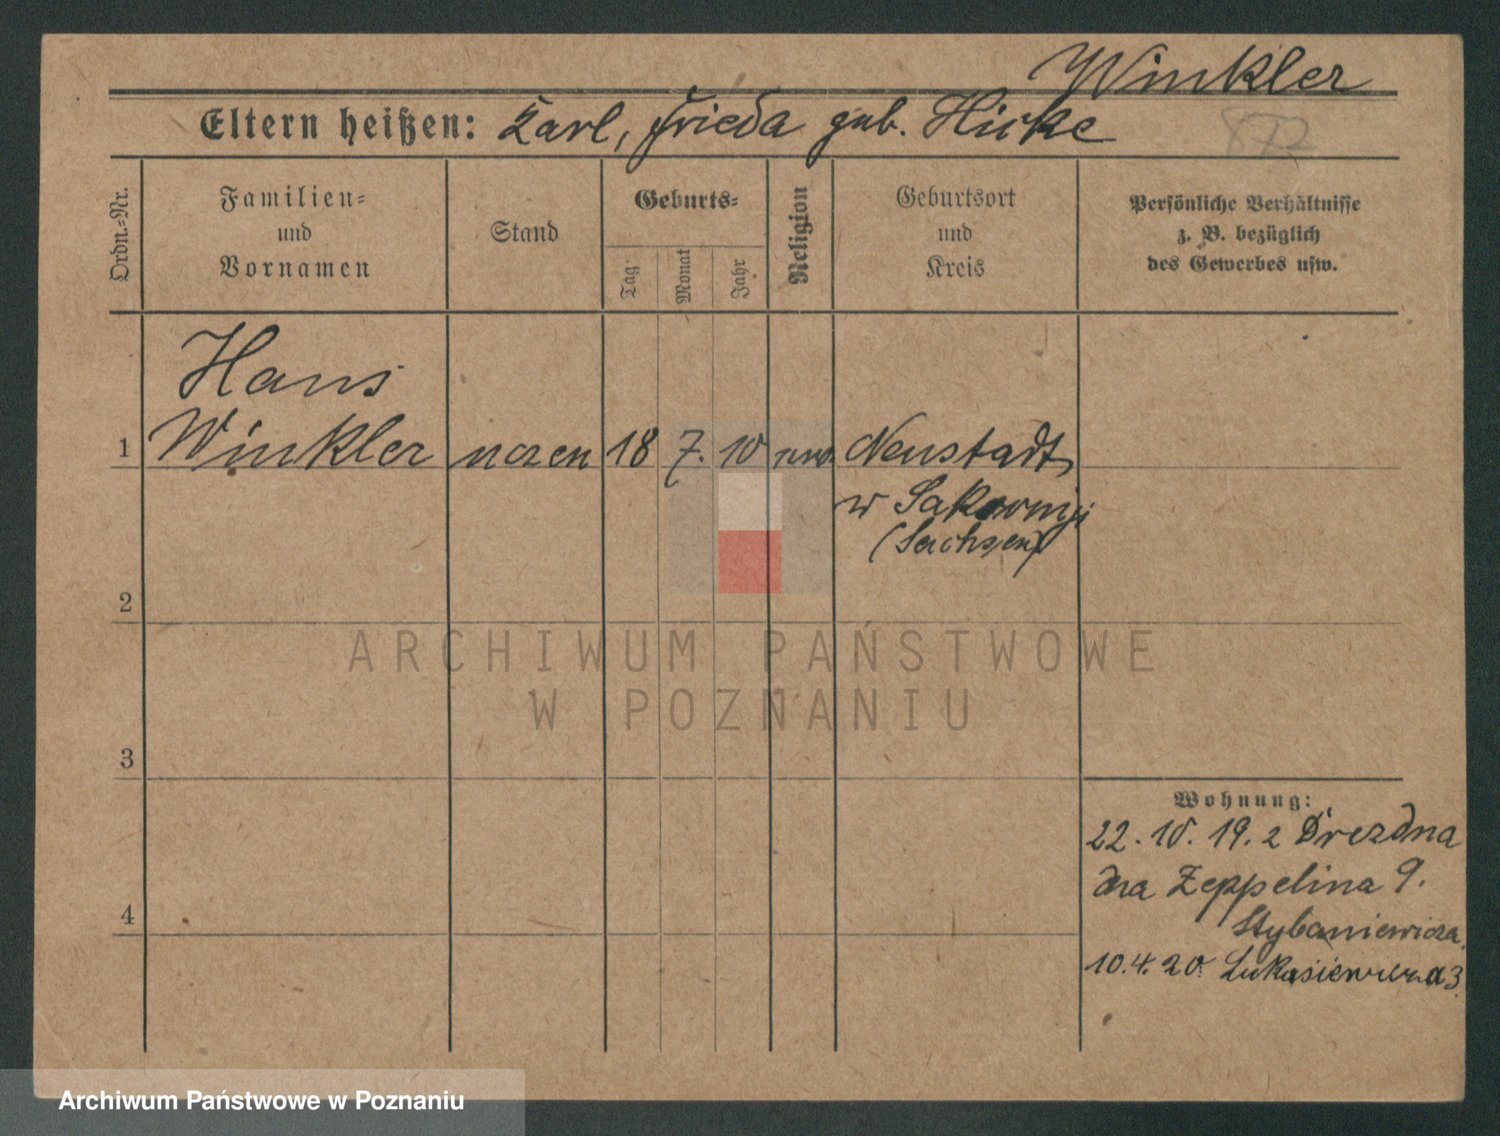 Winkler
Eltern heißen: Karl, Frieda geb. Hicke
872
Ordn.-Nr.
Familien-
und
Vornamen
Stand
Geburts-
Tag
Monat
Jahr
Religion
Geburtsort
und
Kreis
Persönliche Verhältnisse
z. B. bezüglich
des Gewerbes usw.
Hans
1 Winkler uczeń 18 7. 10 Neustadt
w Saksonji
(Sachsen)
2
ARCHIWUM PAŃSTWOWE
W POZNANIU
3
Wohnung:
22.10.19. z Drezdna
Zeppelina 9.
4
10.4.20. Łukasiewicza 3.
Archiwum Państwowe w Poznaniu